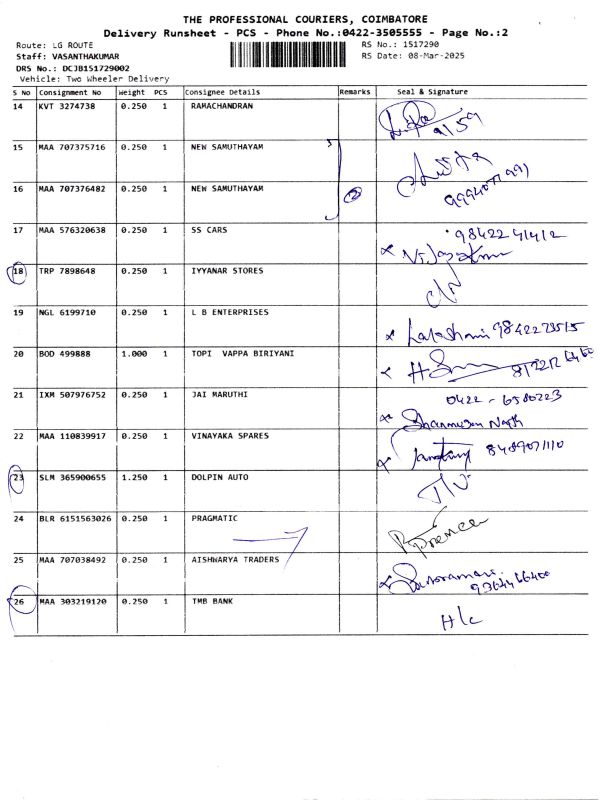 THE PROFESSIONAL COURIERS, COIMBATORE
Delivery Runsheet - PCS - Phone No.:0422-3505555 - Page No.:2
Route: LG ROUTE RS No.: 1517290
Staff: VASANTHAKUMAR RS Date: 08-Mar-2025
DRS No.: DCJB151729002
Vehicle: Two Wheeler Delivery
S No Consignment No Weight PCS Consignee Details Remarks Seal & Signature
14 KVT 3274738 0.250 1 RAMACHANDRAN
15 MAA 707375716 0.250 1 NEW SAMUTHAYAM
16 MAA 707376482 0.250 1 NEW SAMUTHAYAM 2
17 MAA 576320638 0.250 1 SS CARS
18 TRP 7898648 0.250 1 IYYANAR STORES
19 NGL 6199710 0.250 1 L B ENTERPRISES
20 BOD 499888 1.000 1 TOPI VAPPA BIRIYANI
21 IXM 507976752 0.250 1 JAI MARUTHI 0422 - 6580223
22 MAA 110839917 0.250 1 VINAYAKA SPARES
23 SLM 365900655 1.250 1 DOLPIN AUTO
24 BLR 6151563026 0.250 1 PRAGMATIC
25 MAA 707038492 0.250 1 AISHWARYA TRADERS
26 MAA 303219120 0.250 1 TMB BANK H/c